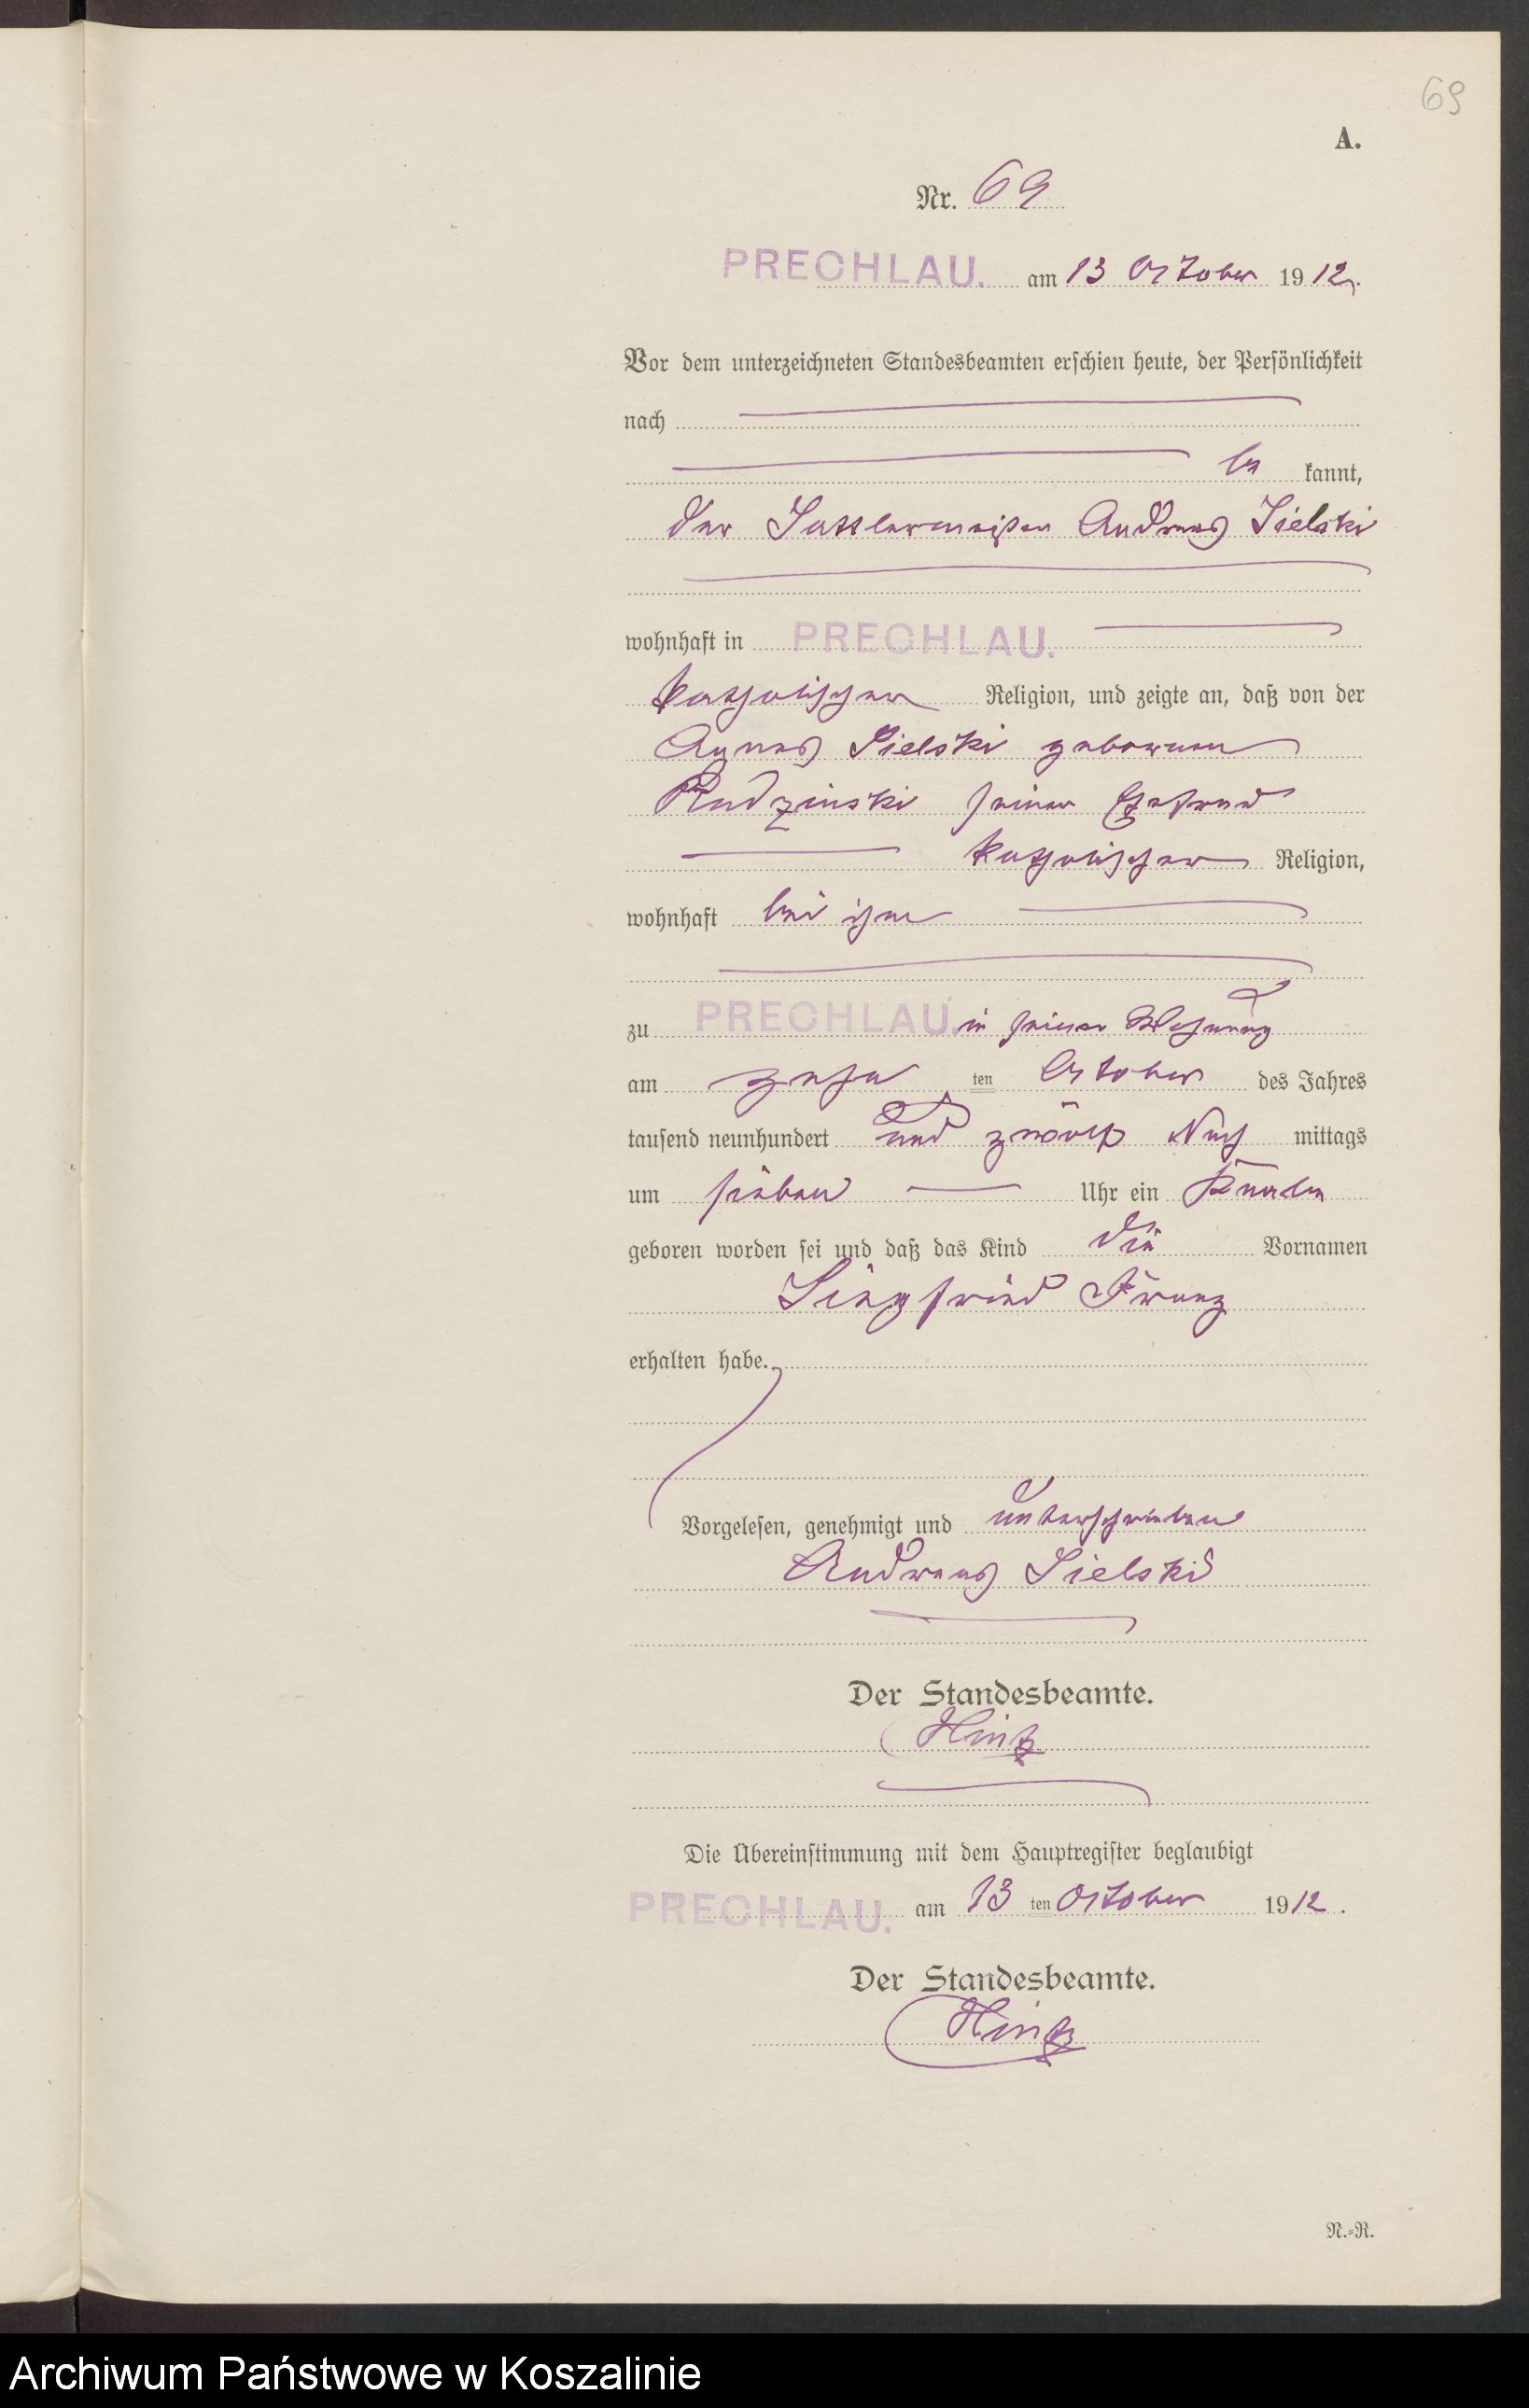 69
A.
Nr. 69
PRECHLAU. am 13 October 1912.
Vor dem unterzeichneten Standesbeamten erschien heute, der Persönlichkeit
nach
be kannt,
der Sattlermeister Andreas Sielski
wohnhaft in PRECHLAU.
katholischer Religion, und zeigte an, daß von der
Agnes Sielski geborenen
Rudzinski seiner Ehefrau
katholischer Religion,
wohnhaft bei ihm
zu PRECHLAU. in seiner Wohnung
am zehn ten October des Jahres
tausend neunhundert und zwölf Nach mittags
um sieben Uhr ein Knabe
geboren worden sei und daß das Kind die Vornamen
Siegfried Franz
erhalten habe.
Vorgelesen, genehmigt und unterschrieben
Andreas Sielski
Der Standesbeamte.
Hintz
Die Übereinstimmung mit dem Hauptregister beglaubigt
PRECHLAU. am 13 ten October 1912.
Der Standesbeamte.
Hintz
N.=R.
Archiwum Państwowe w Koszalinie